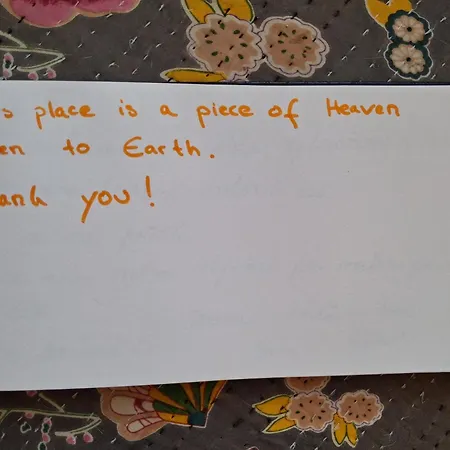 s place is a piece of Heaven
en to Earth.
ank you!